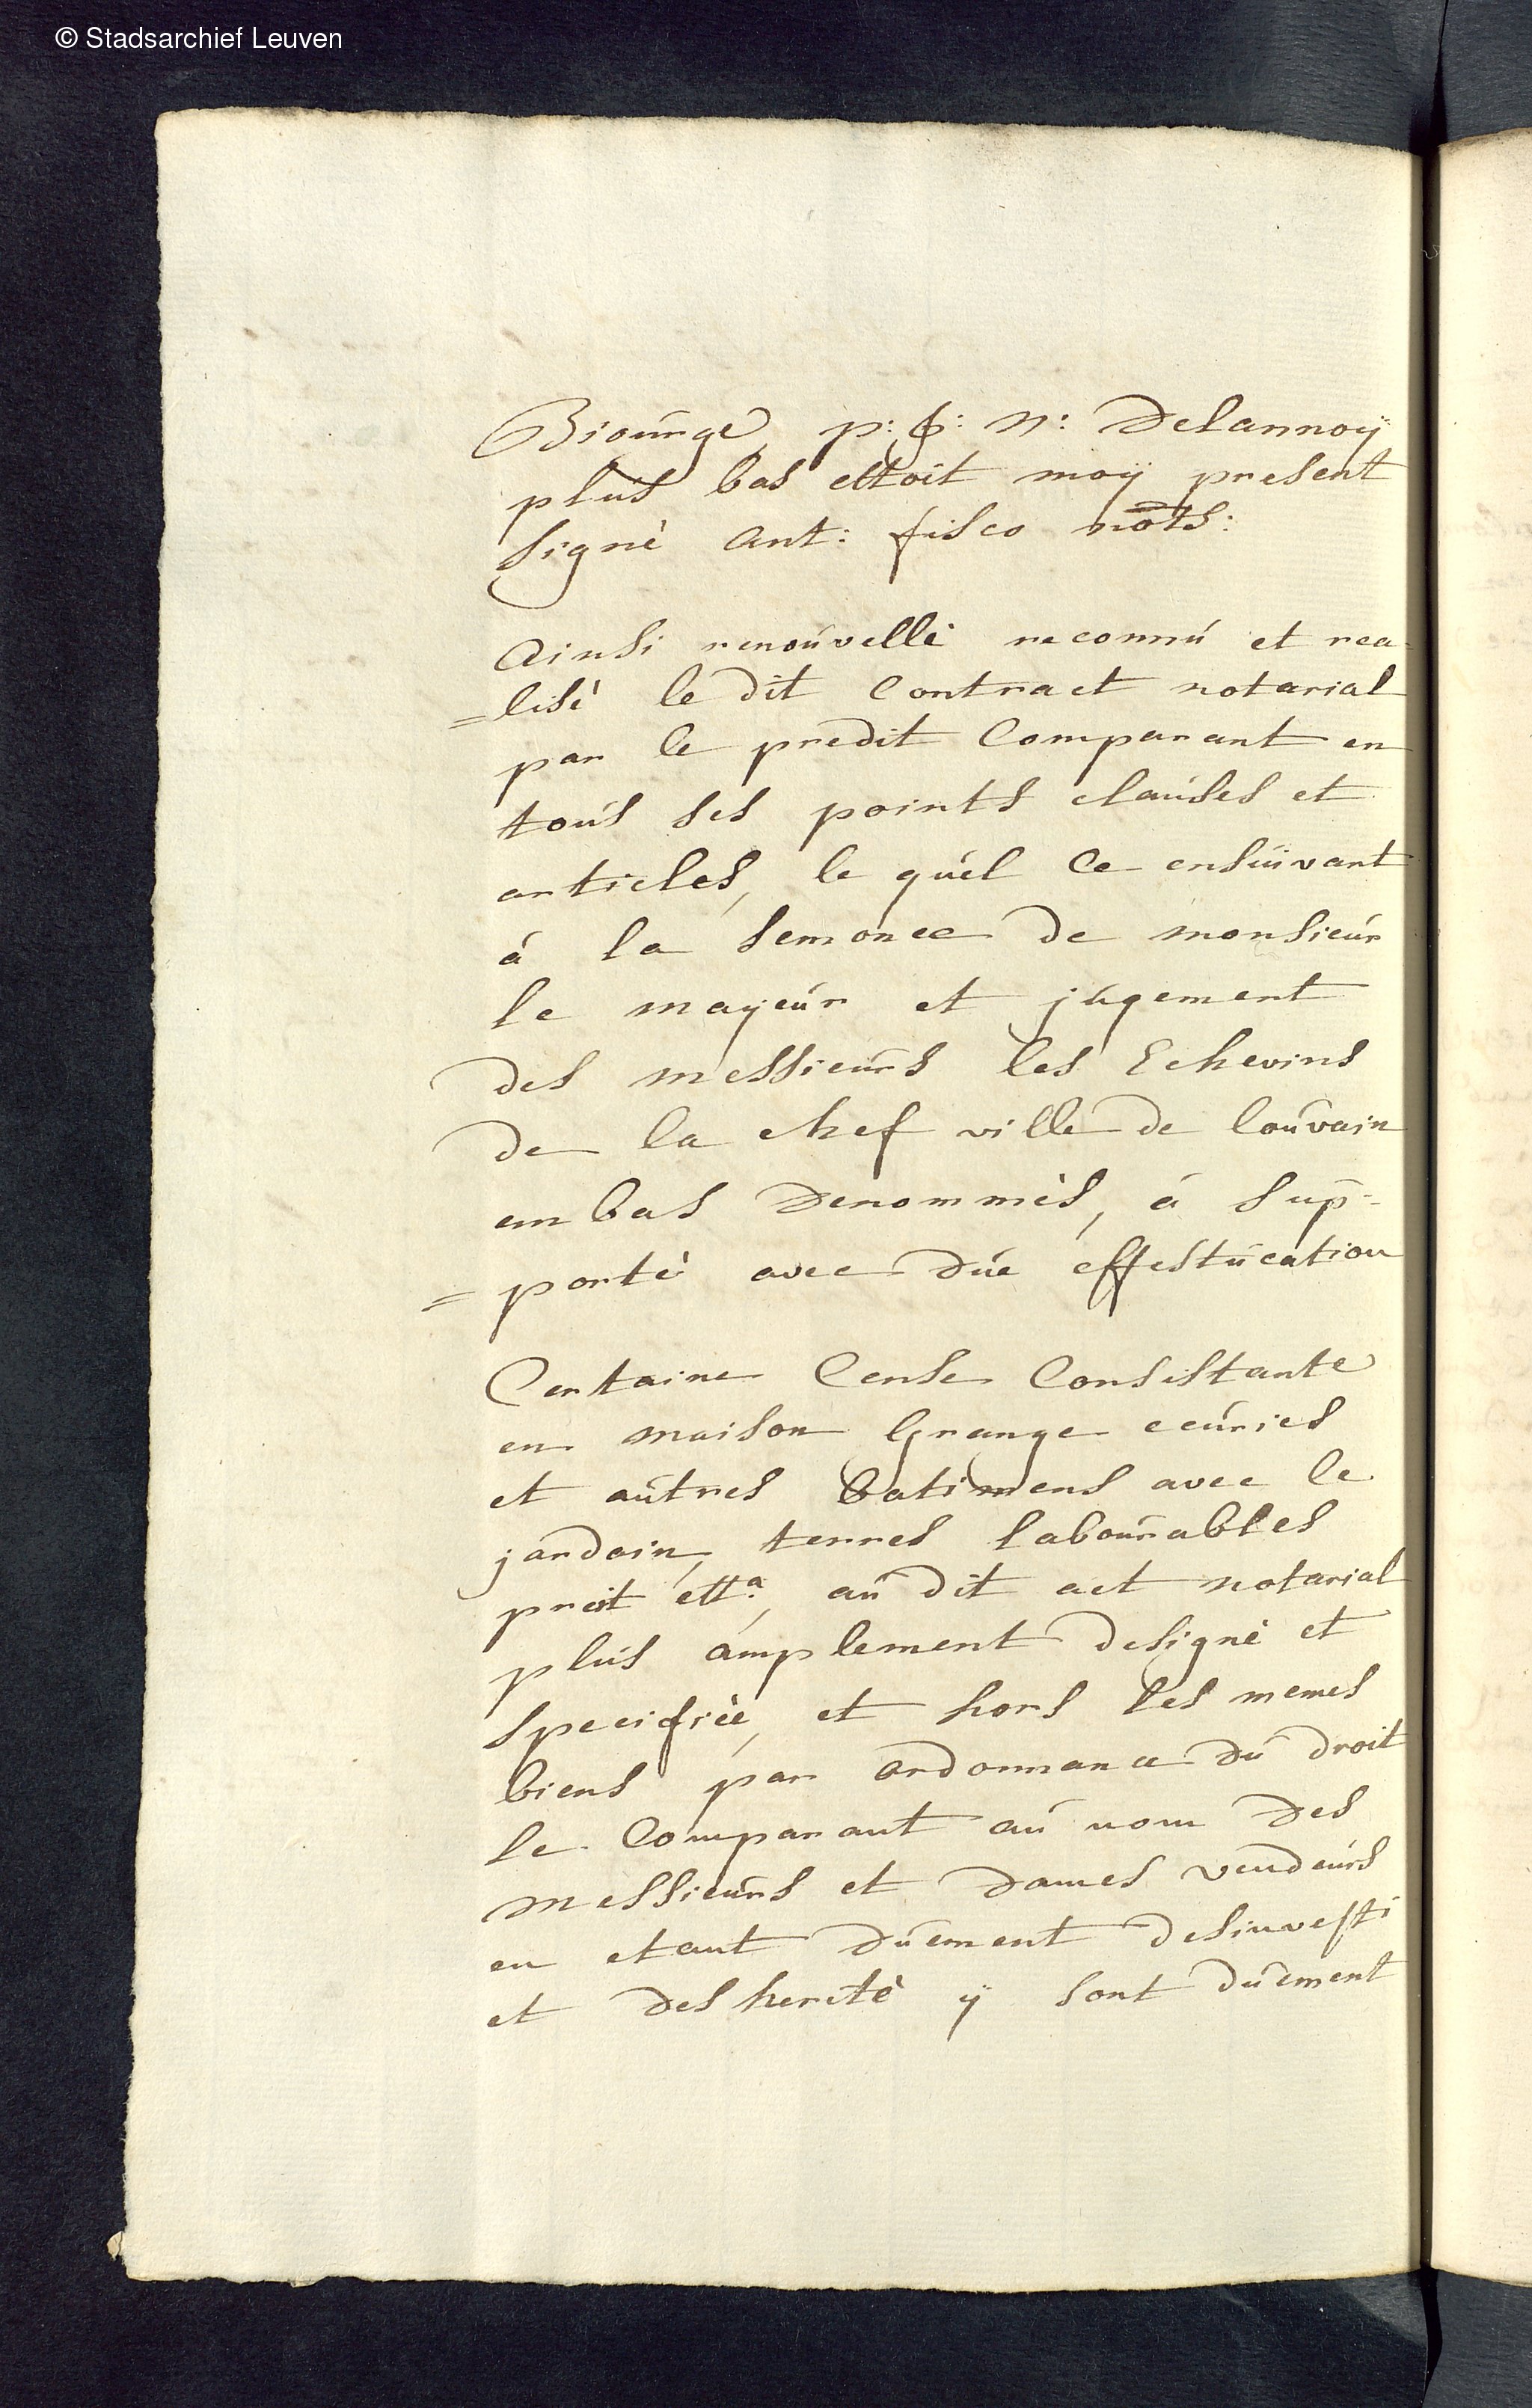 © Stadsarchief Leuven
Bioúrge, p: f: N: Delannoÿ
plús bas estoit moÿ present
signè Ant: fisco nots:
Ainsi renoúvellè reconnú et rea
=lisè le dit Contract notarial
par le predit Comparant en
toús ses points claúses et
articles, le quél Ce ensúivant
á la semonce de monsieúr
le mayeúr et júgement
des messieúrs les Echevins
de la chef ville de loúvain
em bas denommès, á sup-
=portè avec dúe effestúcation
Certaine Cense Consistante
en maison Grange ecúries
et aútres batimens avec le
jardain, terres laboúrables
preit etta, aú dit act notarial
plús amplement designè et
specifièe, et hors les memes
biens par ordonnance dú droit
le Comparant aú nom des
messieúrs et dames vendeúrs
en etant dúement desinvesti
et desheritè ÿ sont dúement